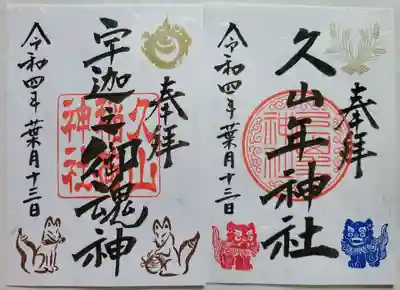 奉拝
久山年神社
令和四年葉月十三日
奉拝
宇迦之御魂神
久山
年神社
令和四年葉月十三日